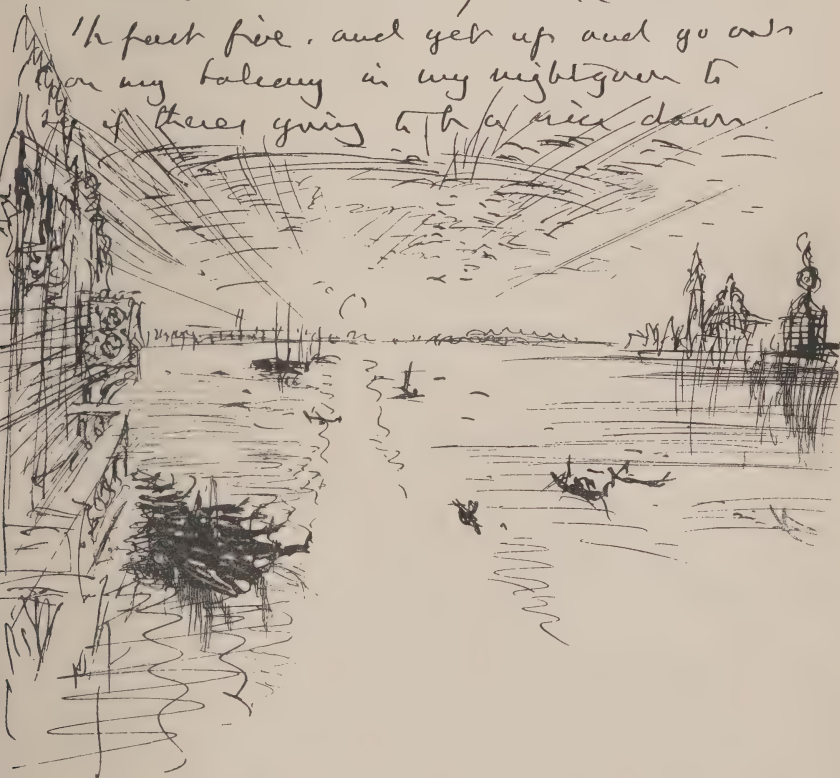 past five. and get up and go out
on my balcony in my nightgown to
see if theres going to be a nice dawn.